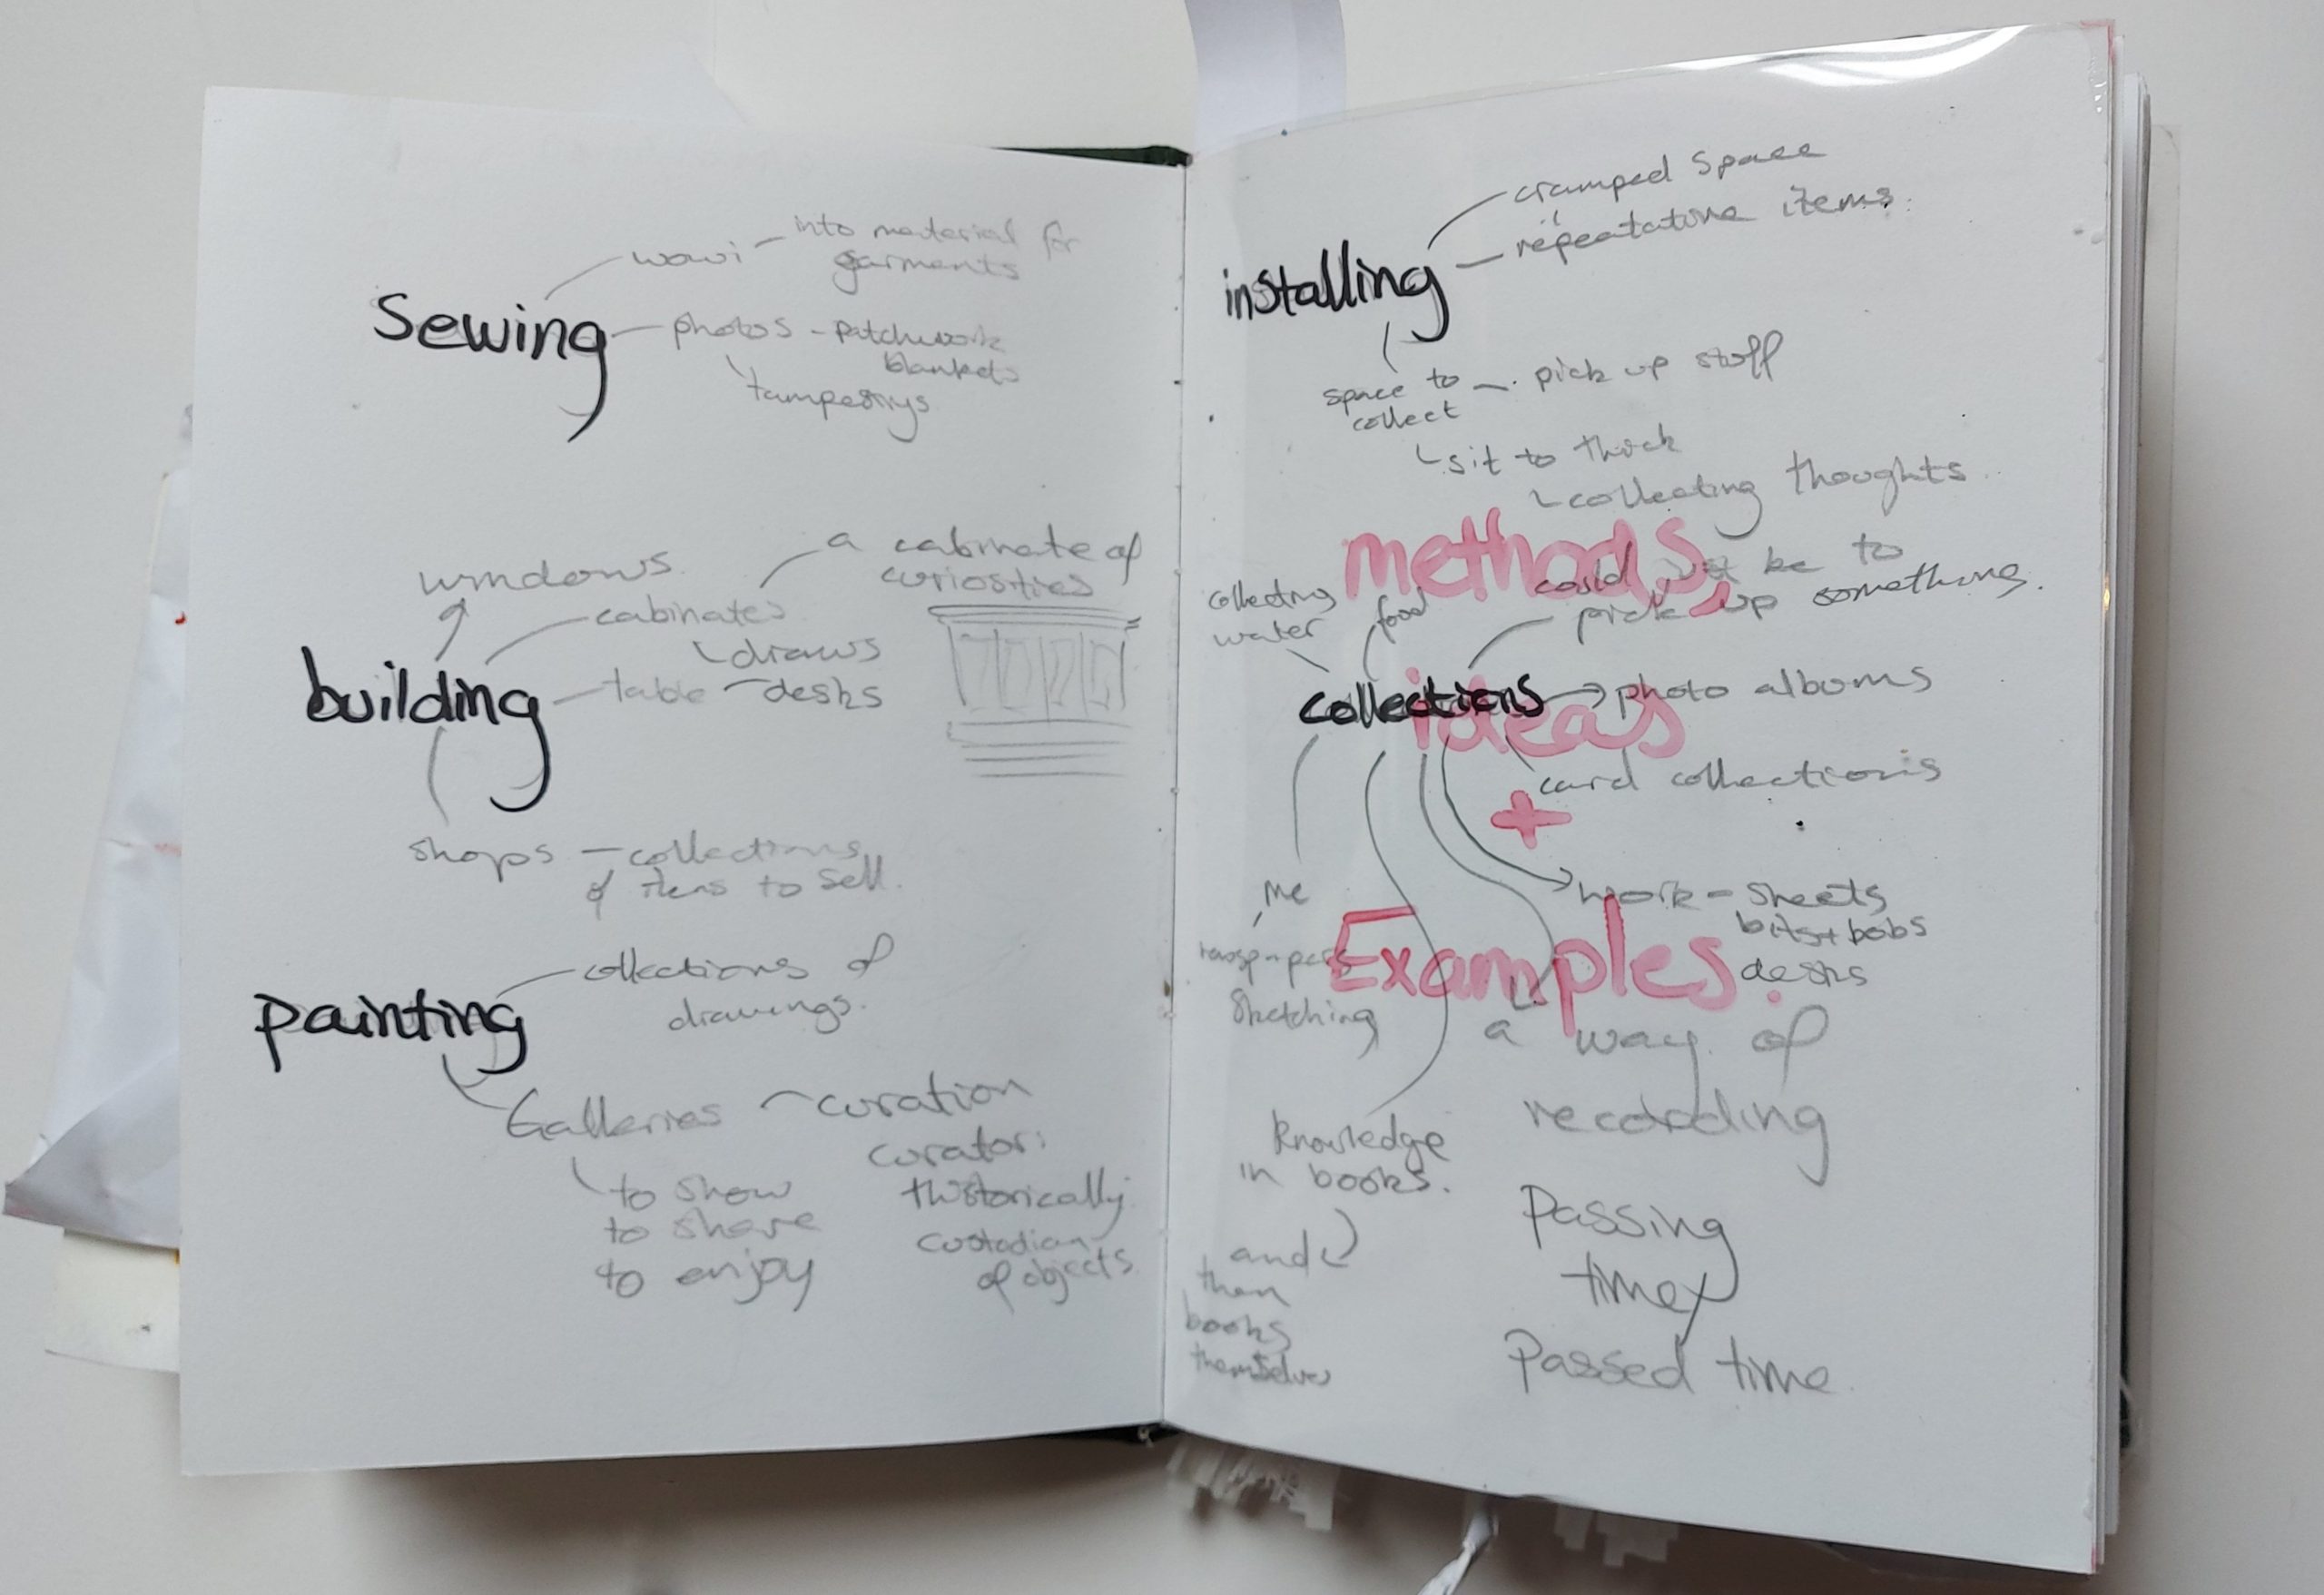 into material for
garments
Sewing
photos - patchwork
blankets
tampestrys
windows
a cabinate of
curiosities
cabinates
draws
building
table - desks
shops - collections
of items to sell.
painting
collections of
drawings.
Galleries - curation
curator:
to show
to share
to enjoy
historically
custodian
of objects
cramped space
repeatative items.
installing
space to - pick up stuff
collect
sit to think
collecting thoughts
methods,
collecting
water
food
could be to
pick up something.
collections
photo albums
ideas
card collections
+
me
work - sheets
bits + bobs
desks
Examples.
sketching
a way of
recording
knowledge
in books.
and
then
books
themselves
Passing
time
Passed time.